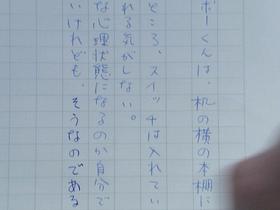 ボーくんは、机の横の本棚に
ところ、スイッチは入れてい
れる気がしない。
な心理状態になるのか自分で
いけれども、そうなのである